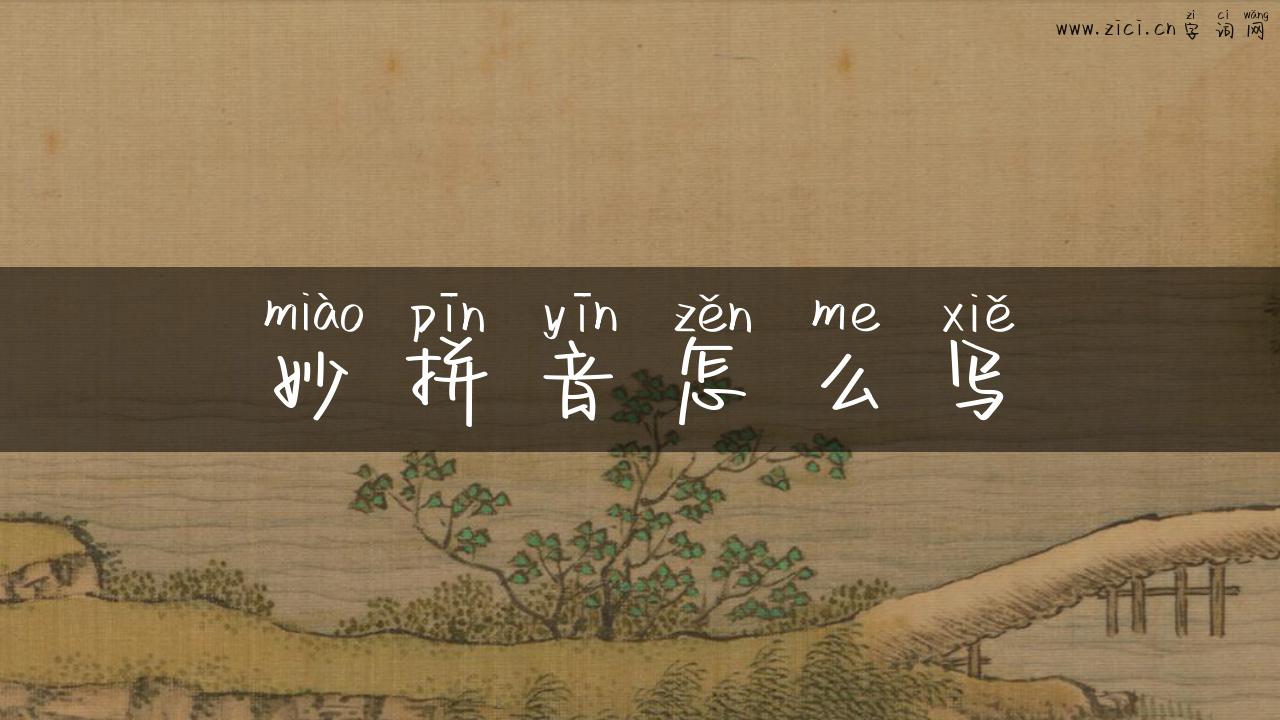 zì cí wǎng
www.zici.cn 字 词 网
miào pīn yīn zěn me xiě
妙 拼 音 怎 么 写